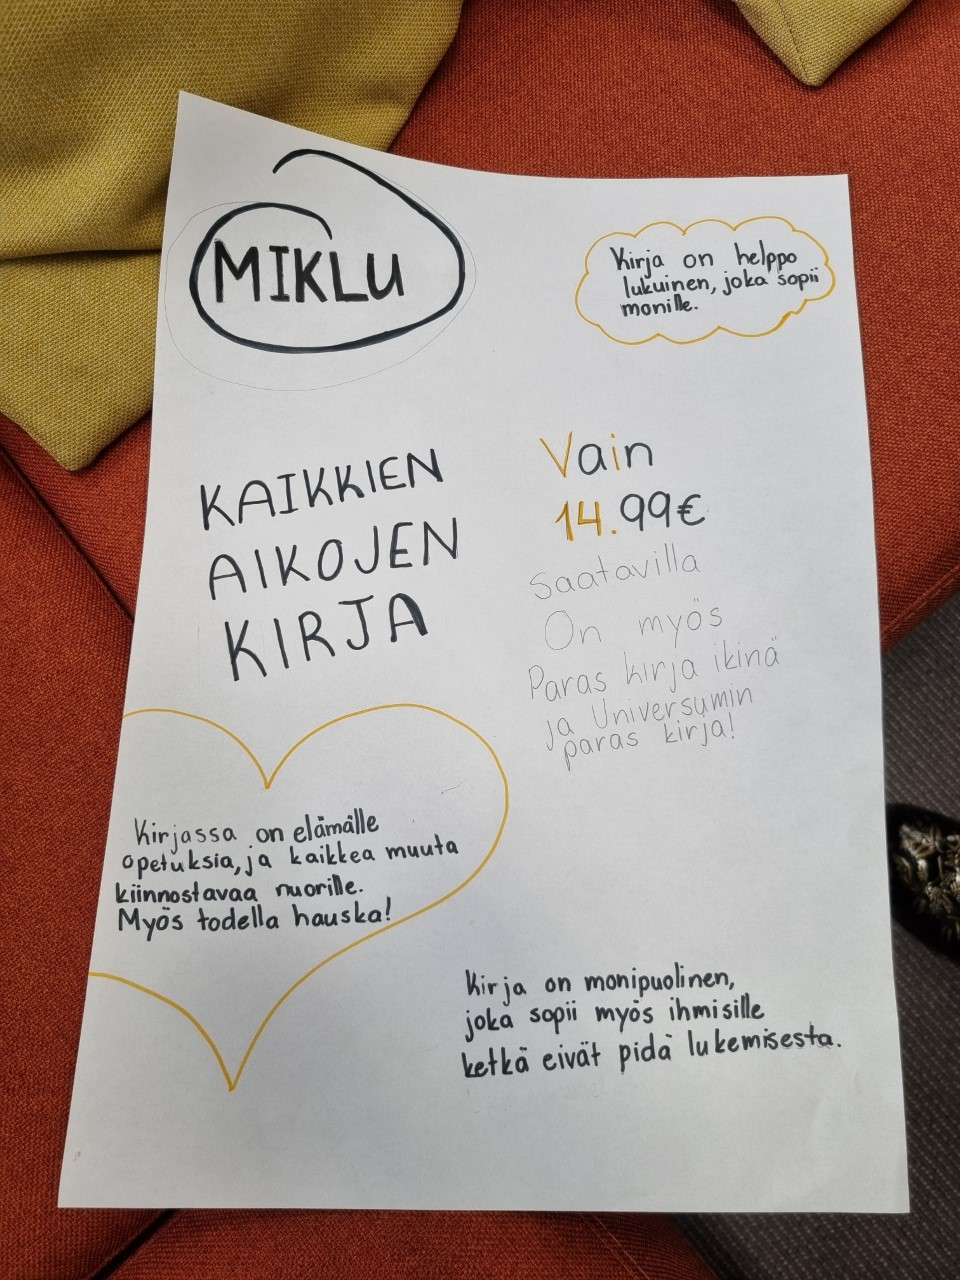 MIKLU
Kirja on helppo
lukuinen, joka sopii
monille.
KAIKKIEN
AIKOJEN
KIRJA
Vain
14.99€
Saatavilla
On myös
Paras kirja ikinä
ja Universumin
paras kirja!
Kirjassa on elämälle
opetuksia, ja kaikkea muuta
kiinnostavaa nuorille.
Myös todella hauska!
Kirja on monipuolinen,
joka sopii myös ihmisille
ketkä eivät pidä lukemisesta.